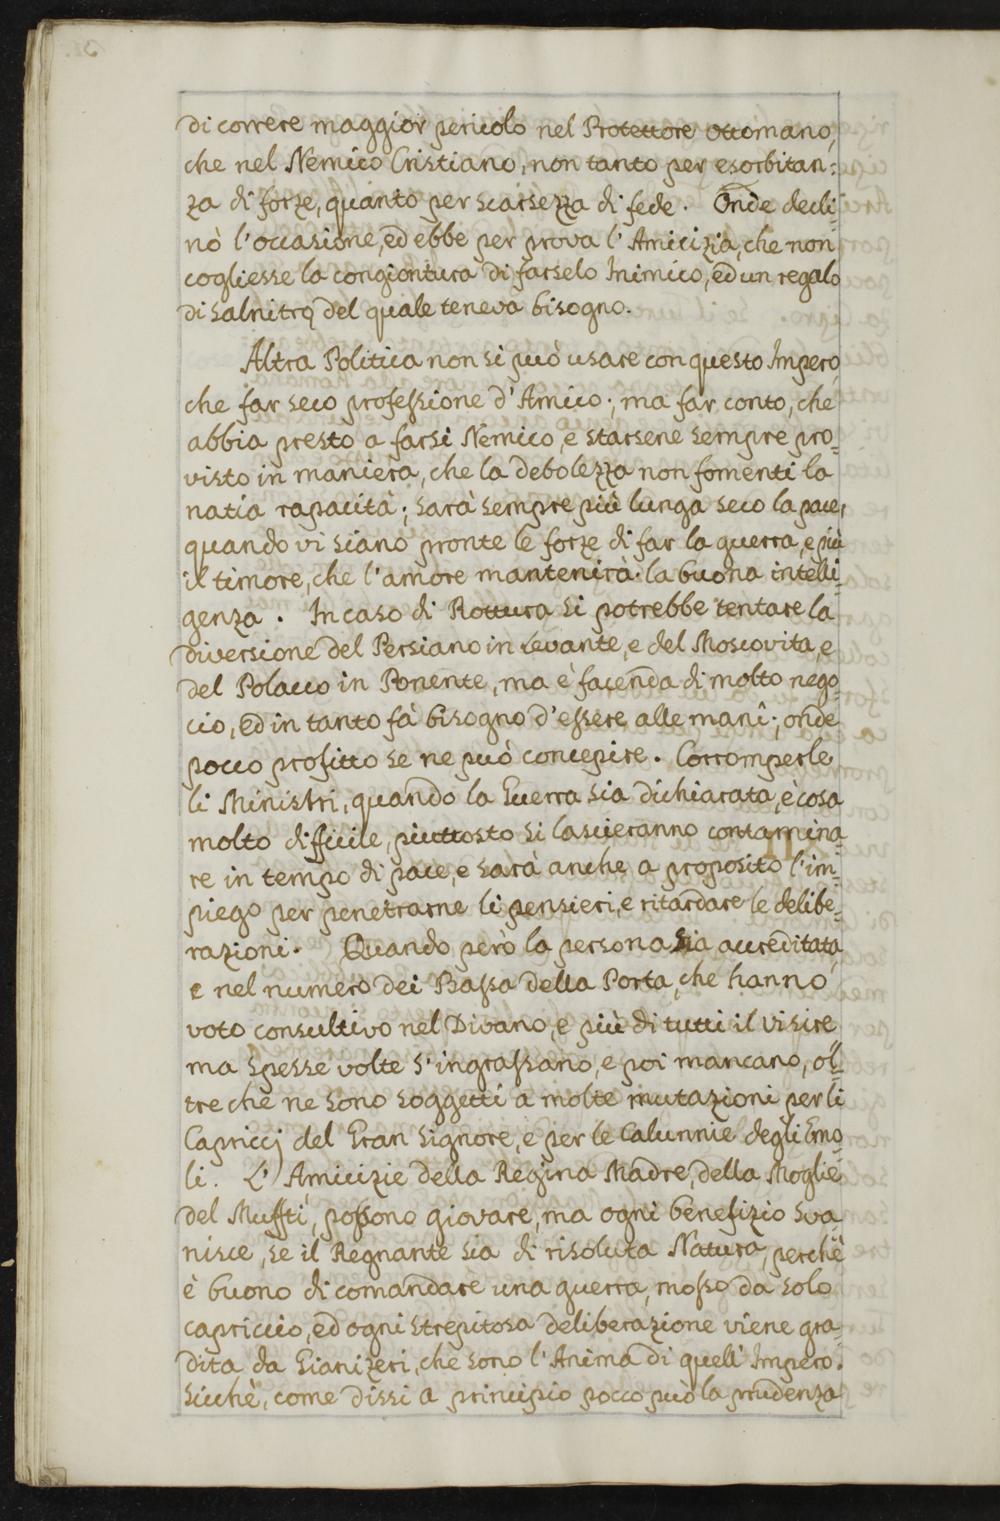 di correre maggior pericolo nel Protettore Ottomano,
che nel Nemico Cristiano, non tanto per esorbitan:
za di forze, quanto per scarsezza di fede. Onde decli=
nò l'occasione, ed ebbe per prova l'Amicizia, che non
cogliesse la congiontura di farselo Inimico, ed un regalo
di Salnitro, del quale teneva bisogno.
Altra Politica non si può usare con questo Impero,
che far seco professione d'Amico; ma far conto, che
abbia presto a farsi Nemico, e starsene sempre pro=
visto in maniera, che la debolezza non fomenti la
natia rapacità; sarà sempre più lunga seco la pace,
quando vi siano pronte le forze di far la guerra, e più
il timore, che l'amore mantenirà la buona intelli=
genza. In caso di Rottura si potrebbe tentare la
diversione del Persiano in Levante, e del Moscovita, e
del Polacco in Ponente, ma è facenda di molto nego=
cio, ed in tanto fà bisogno d'essere alle mani; onde
pocco profitto se ne può concepire. Corromperle
li Ministri, quando la Guerra sia dichiarata, è cosa
molto difficile, piuttosto si lascieranno contamina=
re in tempo di pace, e sarà anche a proposito l'im=
piego per penetrarne li pensieri, e ritardare le delibe=
razioni. Quando però la persona sia accreditata,
e nel numero dei Bassa della Porta, che hanno
voto consultivo nel Divano, e più di tutti il Visire
ma spesse volte s'ingrassano, e poi mancano, ol=
tre che ne sono soggetti a molte mutazioni per li
Capriccj del Gran Signore, e per le Calunnie degli Emo=
li. L'Amicizie della Regina Madre, della Moglie
del Muffti, possono giovare, ma ogni benefizio sva=
nisce, se il Regnante sia di risoluta Natura, perchè
è buono di comandare una guerra, mosso da solo
capriccio, ed ogni strepitosa deliberazione viene gra=
dita da Gianizeri, che sono l'Anima di quell'Impero.
Sicchè, come dissi a principio pocco può la prudenza